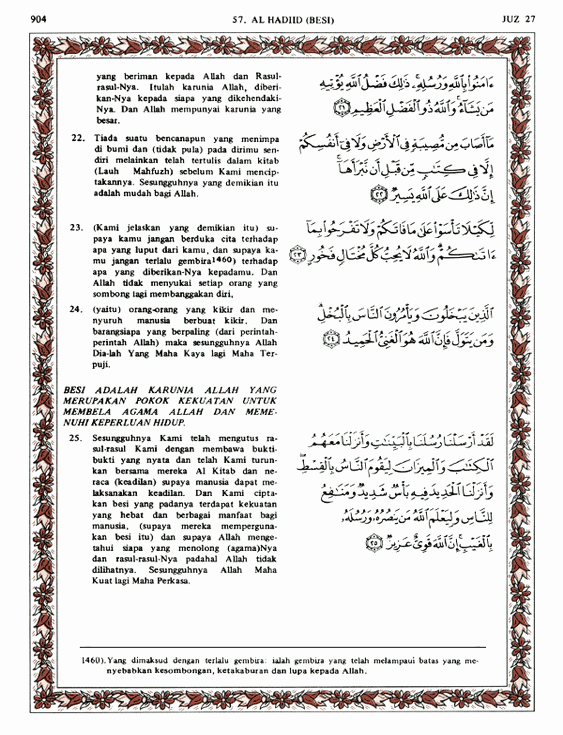 904
57. AL HADIID (BESI)
JUZ 27
yang beriman kepada Allah dan Rasul-
rasul-Nya. Itulah karunia Allah, diberi-
kan-Nya kepada siapa yang dikehendaki-
Nya. Dan Allah mempunyai karunia yang
besar.
ءَامَنُوا۟ بِٱللَّهِ وَرُسُلِهِۦ ۚ ذَٰلِكَ فَضْلُ ٱللَّهِ يُؤْتِيهِ
مَن يَشَآءُ ۚ وَٱللَّهُ ذُو ٱلْفَضْلِ ٱلْعَظِيمِ ٢١
22. Tiada suatu bencanapun yang menimpa
di bumi dan (tidak pula) pada dirimu sen-
diri melainkan telah tertulis dalam kitab
(Lauh Mahfuzh) sebelum Kami mencip-
takannya. Sesungguhnya yang demikian itu
adalah mudah bagi Allah.
مَآ أَصَابَ مِن مُّصِيبَةٍ فِى ٱلْأَرْضِ وَلَا فِىٓ أَنفُسِكُمْ
إِلَّا فِى كِتَٰبٍ مِّن قَبْلِ أَن نَّبْرَأَهَآ ۚ
إِنَّ ذَٰلِكَ عَلَى ٱللَّهِ يَسِيرٌ ٢٢
23. (Kami jelaskan yang demikian itu) su-
paya kamu jangan berduka cita terhadap
apa yang luput dari kamu, dan supaya ka-
mu jangan terlalu gembira1460) terhadap
apa yang diberikan-Nya kepadamu. Dan
Allah tidak menyukai setiap orang yang
sombong lagi membanggakan diri,
لِّكَيْلَا تَأْسَوْا۟ عَلَىٰ مَا فَاتَكُمْ وَلَا تَفْرَحُوا۟ بِمَآ
ءَاتَىٰكُمْ ۗ وَٱللَّهُ لَا يُحِبُّ كُلَّ مُخْتَالٍ فَخُورٍ ٢٣
24. (yaitu) orang-orang yang kikir dan me-
nyuruh manusia berbuat kikir. Dan
barangsiapa yang berpaling (dari perintah-
perintah Allah) maka sesungguhnya Allah
Dia-lah Yang Maha Kaya lagi Maha Ter-
puji.
ٱلَّذِينَ يَبْخَلُونَ وَيَأْمُرُونَ ٱلنَّاسَ بِٱلْبُخْلِ ۗ
وَمَن يَتَوَلَّ فَإِنَّ ٱللَّهَ هُوَ ٱلْغَنِىُّ ٱلْحَمِيدُ ٢٤
BESI ADALAH KARUNIA ALLAH YANG
MERUPAKAN POKOK KEKUATAN UNTUK
MEMBELA AGAMA ALLAH DAN MEME-
NUHI KEPERLUAN HIDUP.
25. Sesungguhnya Kami telah mengutus ra-
sul-rasul Kami dengan membawa bukti-
bukti yang nyata dan telah Kami turun-
kan bersama mereka Al Kitab dan ne-
raca (keadilan) supaya manusia dapat me-
laksanakan keadilan. Dan Kami cipta-
kan besi yang padanya terdapat kekuatan
yang hebat dan berbagai manfaat bagi
manusia, (supaya mereka memperguna-
kan besi itu) dan supaya Allah menge-
tahui siapa yang menolong (agama)Nya
dan rasul-rasul-Nya padahal Allah tidak
dilihatnya. Sesungguhnya Allah Maha
Kuat lagi Maha Perkasa.
لَقَدْ أَرْسَلْنَا رُسُلَنَا بِٱلْبَيِّنَٰتِ وَأَنزَلْنَا مَعَهُمُ
ٱلْكِتَٰبَ وَٱلْمِيزَانَ لِيَقُومَ ٱلنَّاسُ بِٱلْقِسْطِ ۖ
وَأَنزَلْنَا ٱلْحَدِيدَ فِيهِ بَأْسٌ شَدِيدٌ وَمَنَٰفِعُ
لِلنَّاسِ وَلِيَعْلَمَ ٱللَّهُ مَن يَنصُرُهُۥ وَرُسُلَهُۥ
بِٱلْغَيْبِ ۚ إِنَّ ٱللَّهَ قَوِىٌّ عَزِيزٌ ٢٥
1460). Yang dimaksud dengan terlalu gembira: ialah gembira yang telah melampaui batas yang me-
nyebabkan kesombongan, ketakaburan dan lupa kepada Allah.